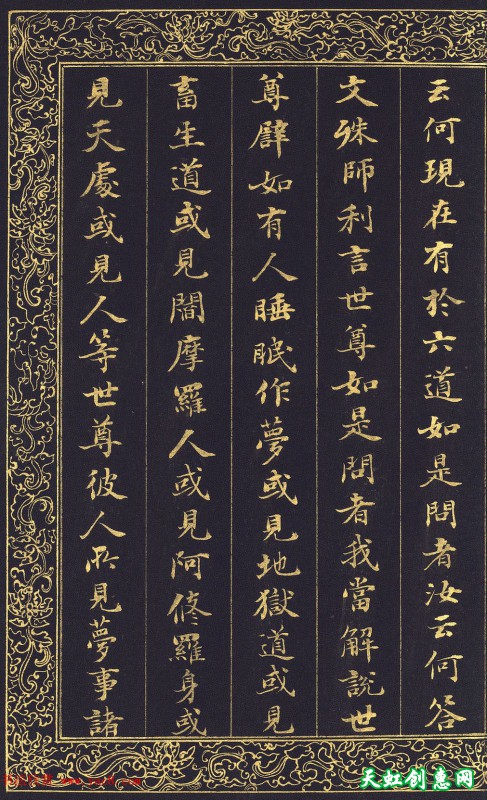 云何現在有於六道如是問者汝云何答
文殊師利言世尊如是問者我當解說世
尊譬如有人睡眠作夢或見地獄道或見
畜生道或見閻摩羅人或見阿修羅身或
見天處或見人等世尊彼人所見夢事諸
天虹创意网